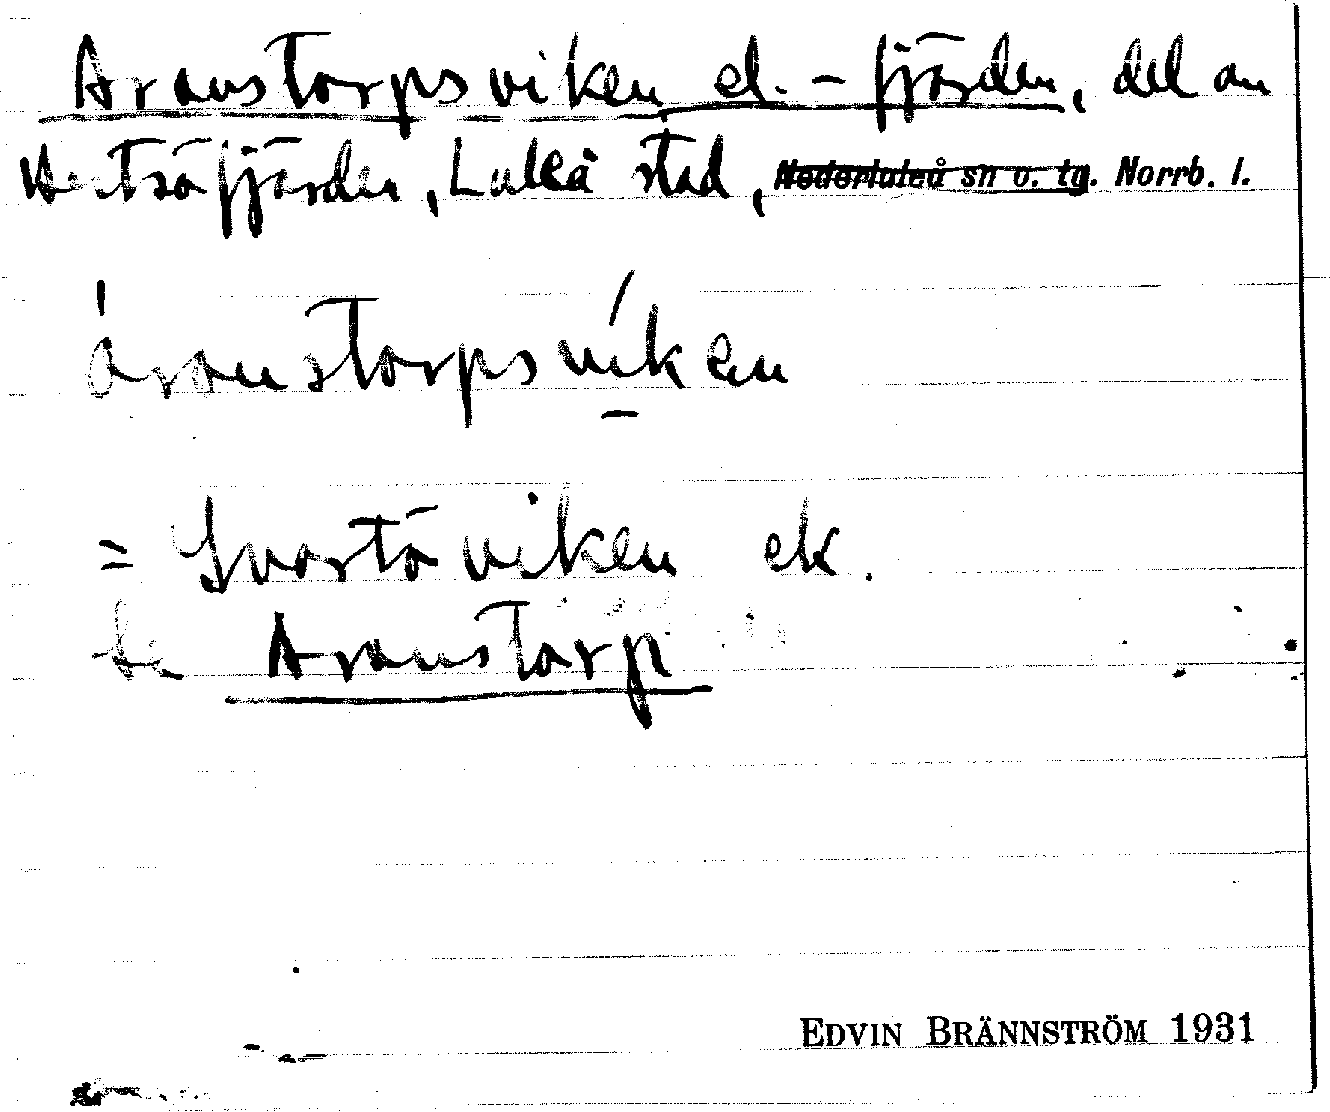 Aronstorpsviken el. -fjärden, del av
Hertsöfjärden, Luleå stad, Nederluleå sn o. tg. Norrb. l.
áronstorpsvíken
= Svartöviken ek.
Aronstorp
EDVIN BRÄNNSTRÖM 1931